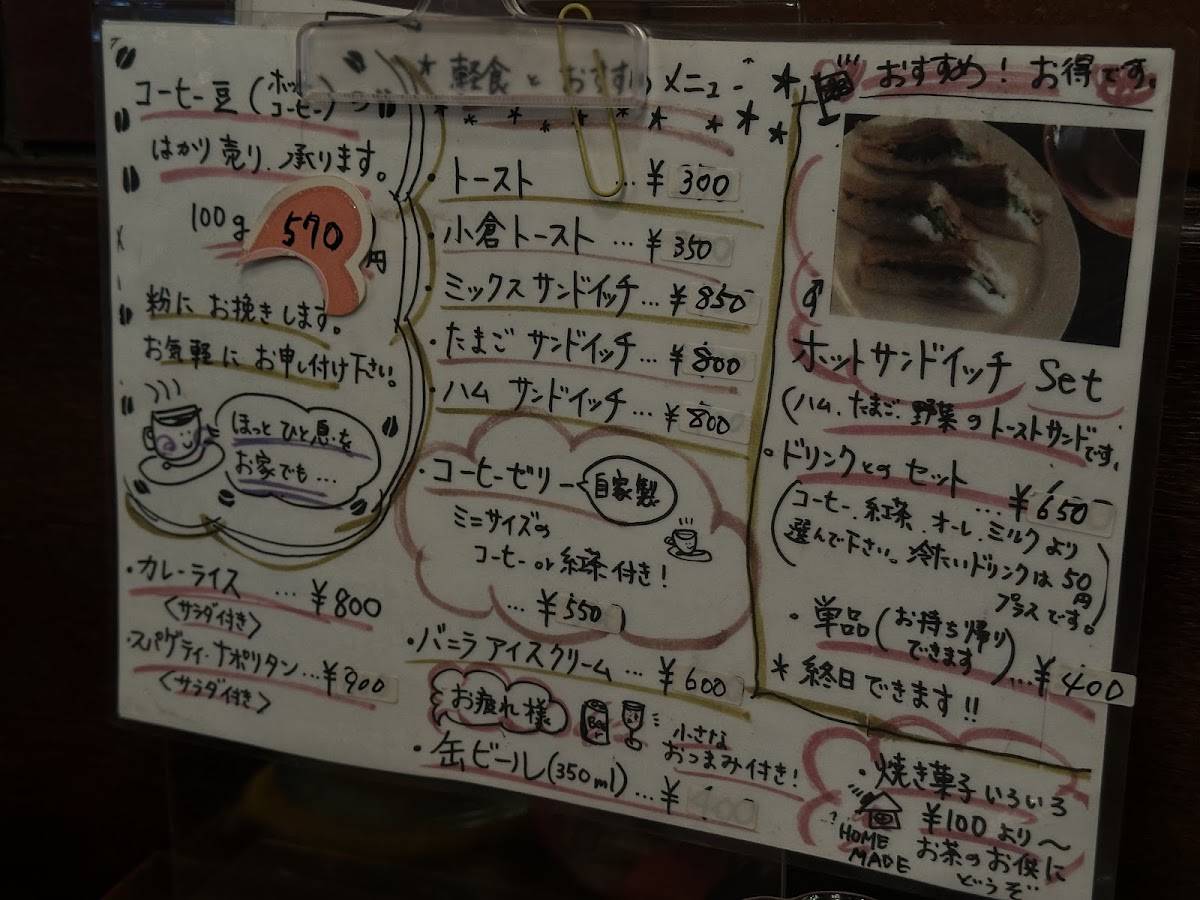 コーヒー豆(ホットコーヒー)の
はかり売り、承ります。
100g 570円
粉にお挽きします。
お気軽にお申し付け下さい。
ほっとひと息を
お家でも…
・カレーライス …¥800
<サラダ付き>
・スパゲティ・ナポリタン…¥900
<サラダ付き>
軽食と おすすめ メニュー
・トースト …¥300
・小倉トースト …¥350
・ミックスサンドイッチ…¥850
・たまご サンドイッチ…¥800
・ハム サンドイッチ…¥800
・コーヒーゼリー 自家製
ミニサイズの
コーヒー or 紅茶付き!
…¥550
・バニラアイスクリーム…¥600
お疲れ様
小さな
おつまみ付き!
・缶ビール(350ml)…¥
おすすめ! お得です。
ホットサンドイッチ Set
(ハム、たまご、野菜のトーストサンドです。
・ドリンクとのセット
…¥650
(コーヒー、紅茶、オーレ、ミルクより
選んで下さい。冷たいドリンクは50円
プラスです。)
・単品(お持ち帰り
できます)…¥400
*終日できます!!
・焼き菓子いろいろ
¥100より〜
HOME
MADE
お茶のお供に
どうぞ